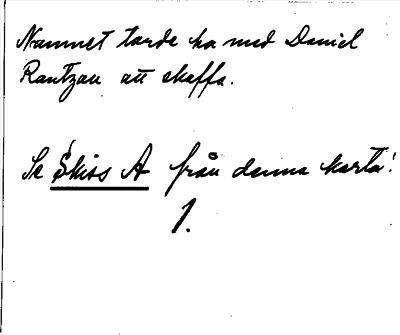 Namnet torde ha med Daniel
Rantzau att skaffa.
Se Skiss A från denna karta!
1.